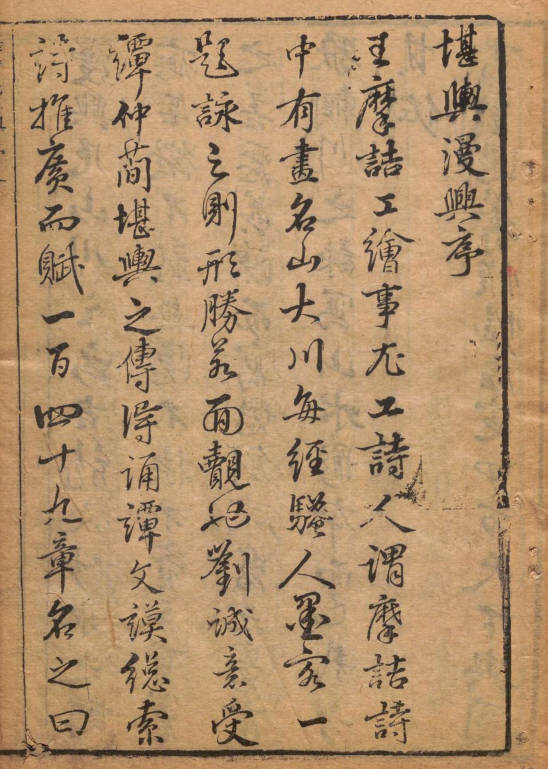 堪輿漫興序
王摩詰工繪事尤工詩人謂摩詰詩
中有畫名山大川每經騷人墨客一
題詠之則形勝若面覿也劉誠意受
譚仲簡堪輿之傳得誦譚文謨總索
詩推廣而賦一百四十九章名之曰